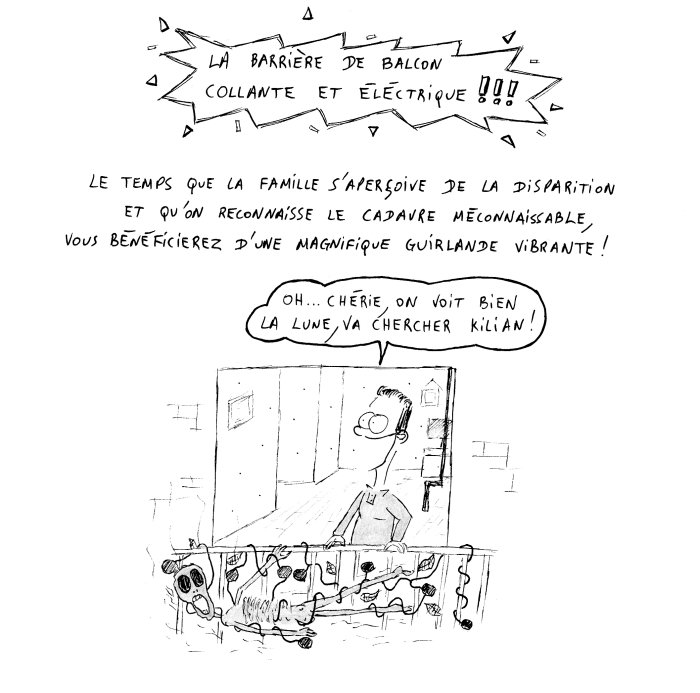 LA BARRIÈRE DE BALCON
COLLANTE ET ÉLÉCTRIQUE !!!
LE TEMPS QUE LA FAMILLE S'APERÇOIVE DE LA DISPARITION
ET QU'ON RECONNAISSE LE CADAVRE MÉCONNAISSABLE,
VOUS BÉNÉFICIEREZ D'UNE MAGNIFIQUE GUIRLANDE VIBRANTE !
OH... CHÉRIE, ON VOIT BIEN
LA LUNE, VA CHERCHER KILIAN !